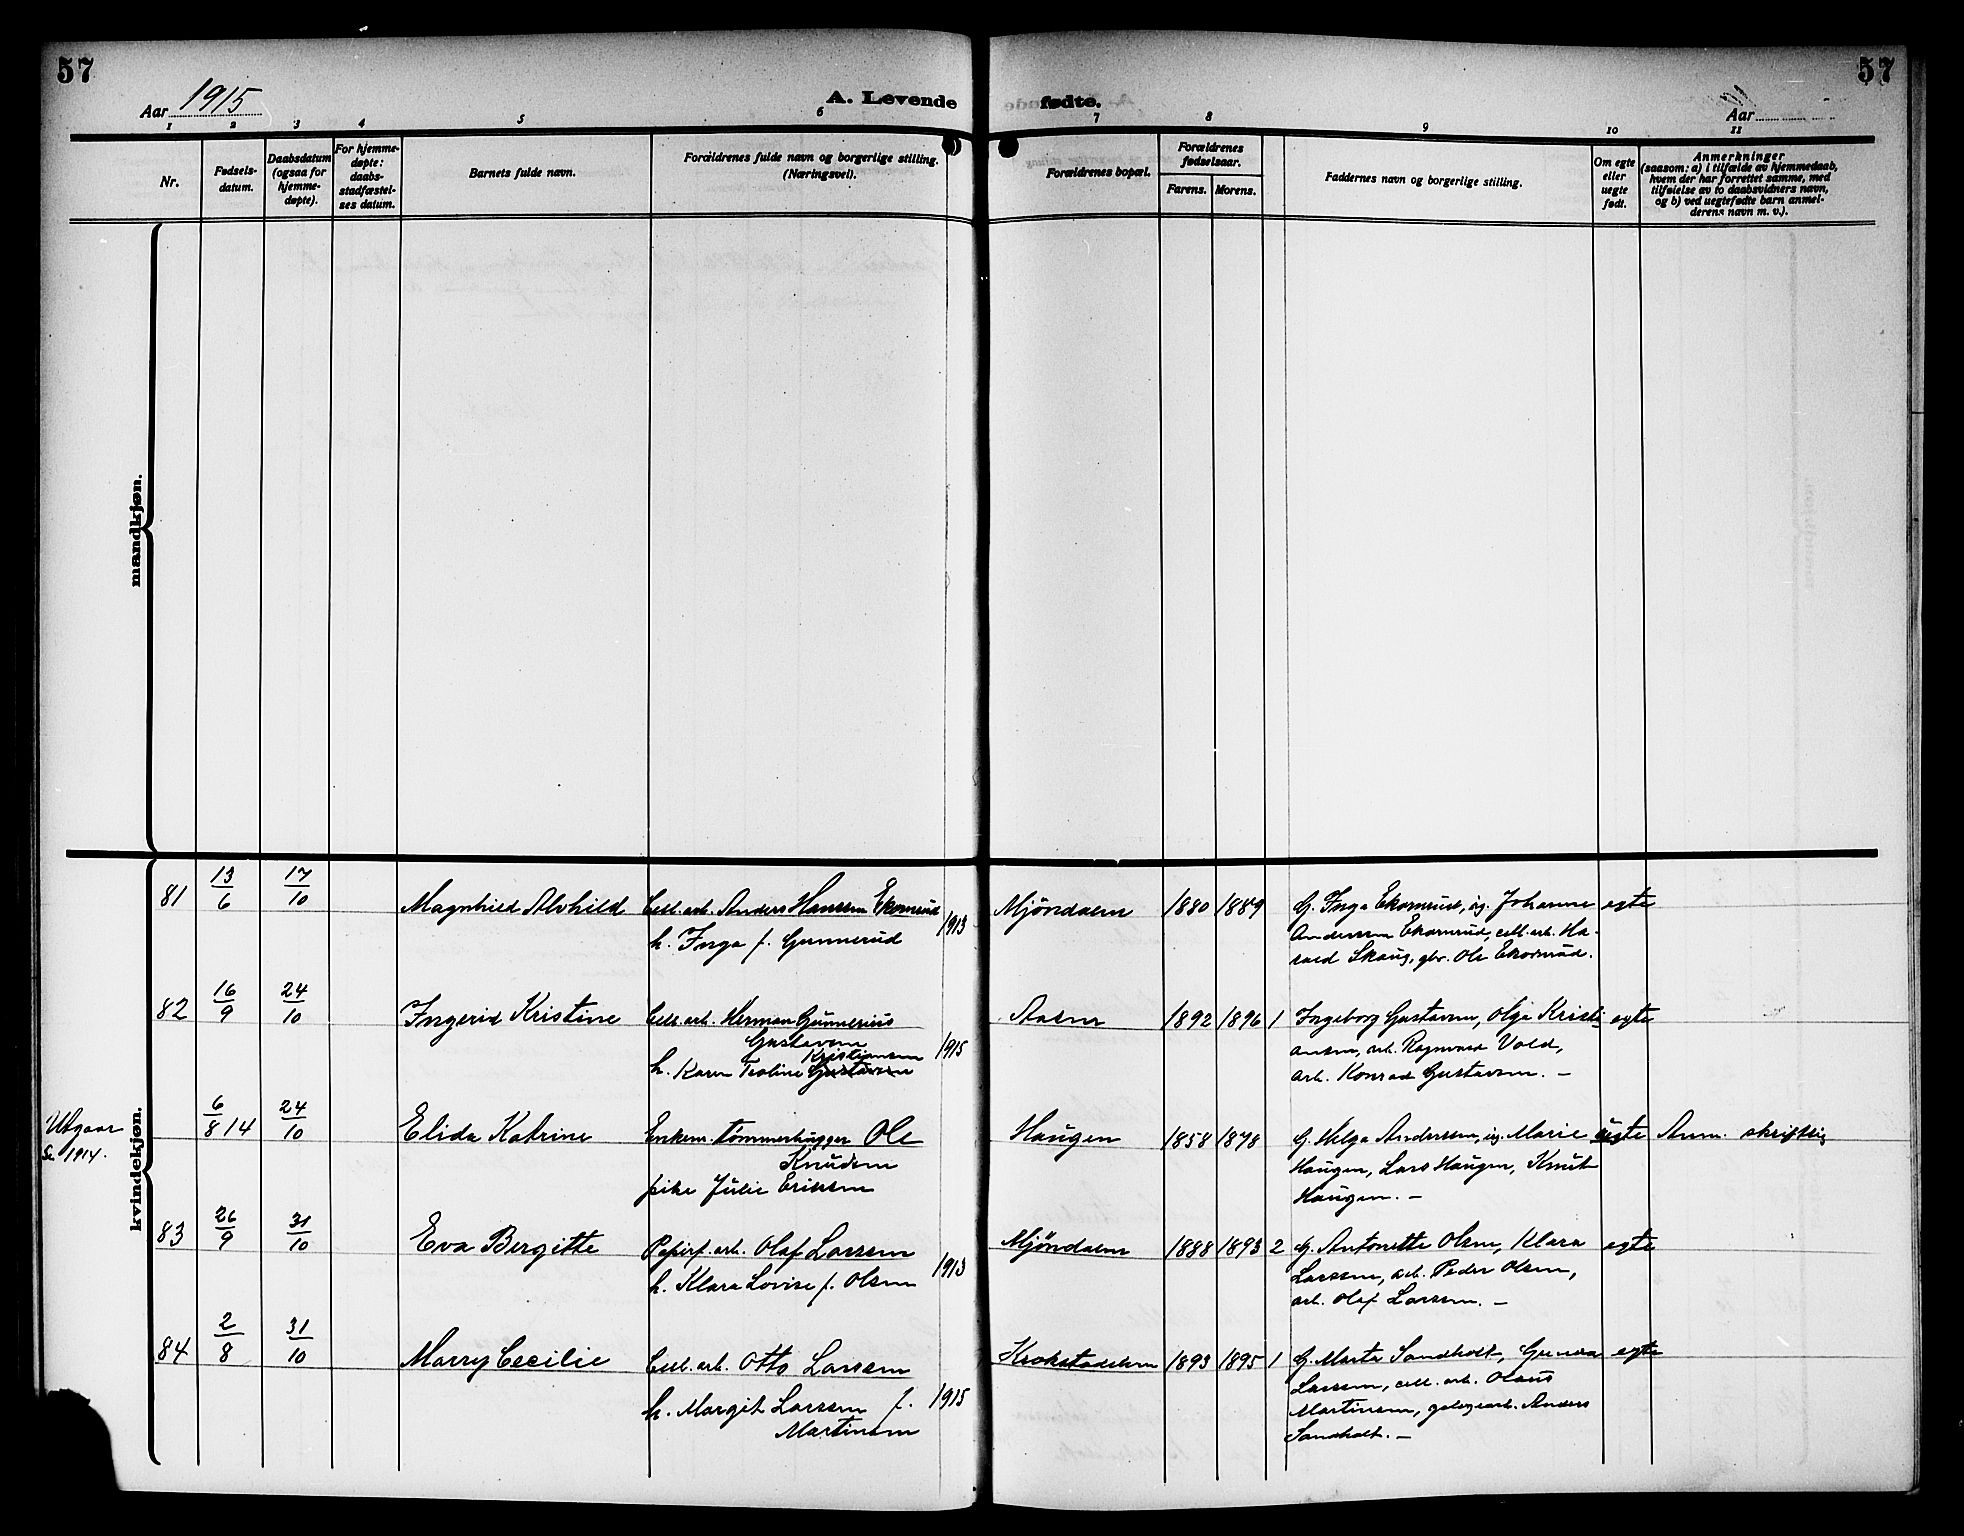 57
57
Aar 1915
A. Levende
fødte.
Aar
1 2 3 4 5 6 7 8 9 10 11
Nr.
Fødsels-
datum.
Daabsdatum
(ogsaa for
hjemme-
døpte).
For hjemme-
døpte:
daabs-
stadfæstel-
ses datum.
Barnets fulde navn.
Forældrenes fulde navn og borgerlige stilling.
(Næringsvei).
Forældrenes bopæl.
Forældrenes
fødselsaar.
Farens. Morens.
Faddernes navn og borgerlige stilling.
Om egte
eller
uegte
født.
Anmerkninger
(saasom: a) i tilfælde av hjemmedaab,
hvem der har forrettet samme, med
tilføielse av to daabsvidners navn,
og b) ved uegtefødte barn anmel-
derens navn m. v.).
mandkjøn.
kvindekjøn.
81 13/6 17/10 Magnhild Alvhild Cell. arb. Anders Hanssen Ekornrud 1913 Mjöndalen 1880 1889 G. Inga Ekornrud, ig. Johanne egte
h. Inga f. Gunnerud
Anderssen Ekornrud, cell. arb. Ha-
rald Skaug, gbr. Ole Ekornrud.
82 16/9 24/10 Ingerid Kristine Cell. arb. Herman Gunnerius Aasen 1892 1896 1 Ingeborg Gustavsen, Olga Kristi- egte
Gustavsen 1915
Kristiansen
h. Karen Teoline Gustavsen
ansen, arb. Ragnvald Vold,
arb. Konrad Gustavsen. –
Utgaar
Se 1914.
6/8 14 24/10 Elida Katrine Enkem. tömmerhugger Ole Haugen 1858 1878 G. Helga Anderssen, ig. Marie uegte Anm. skriftlig
Knudsen
pike Julie Eriksen
Haugen, Lars Haugen, Knut
Haugen. –
83 26/9 31/10 Eva Bergitte Papirf. arb. Olaf Larssen 1913 Mjöndalen 1888 1893 2 G. Antonette Olsen, Klara egte
h. Klara Lovise f. Olsen
Larssen, arb. Peder Olsen,
arb. Olaf Larssen. –
84 2/8 31/10 Marry Cecilie Cell. arb. Otto Larssen Krokstadelven 1893 1895 1 G. Marta Sandholt, Gunda egte
h. Margit Larssen f. 1915
Martinsen
Larssen, cell. arb. Olaus
Martinsen, arb. Anders
Sandholt. –